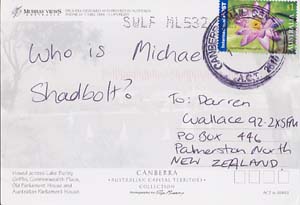 MURRAY VIEWS
SWLF ML532
AUSTRALIA
$1
CANBERRA
A.C.T.
Who is Michael
Shadbolt?
To: Darren
Wallace 92.2XSFM
PO BOX 446
Palmerston North
NEW ZEALAND
CANBERRA
AUSTRALIAN CAPITAL TERRITORY
COLLECTION
Viewed across Lake Burley
Griffin, Commonwealth Place,
Old Parliament House and
Australian Parliament House